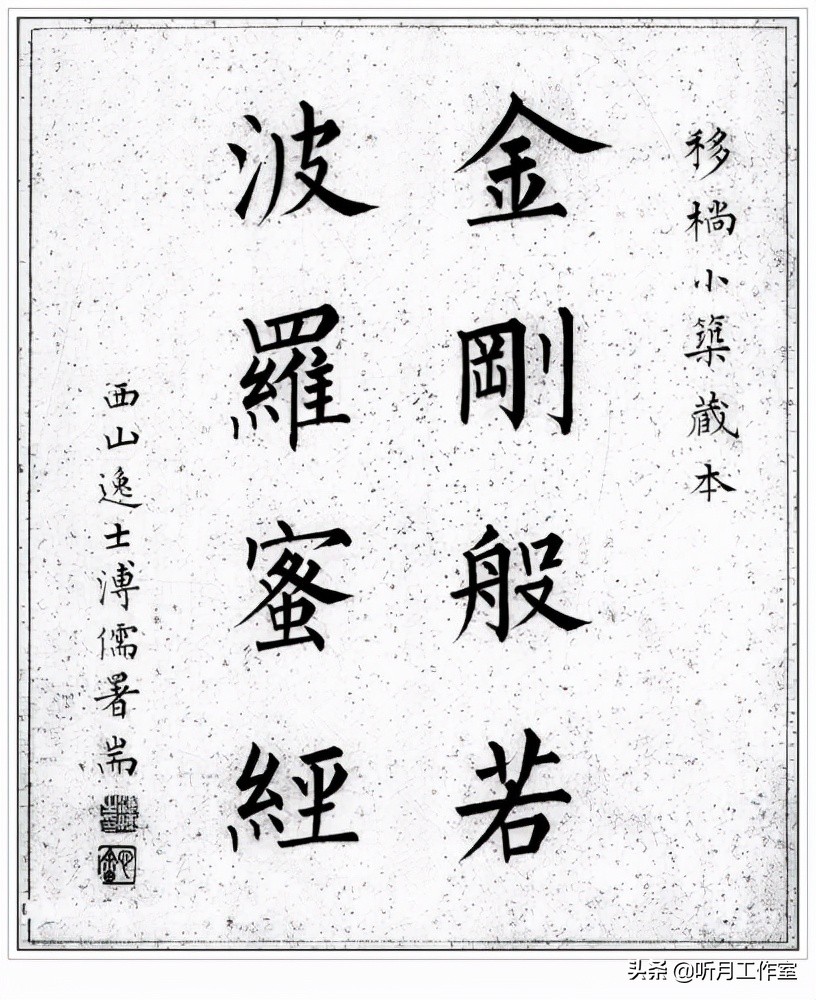 移小築藏本
金剛般若
波羅蜜經
西山逸士溥儒署耑
头条 @听月工作室